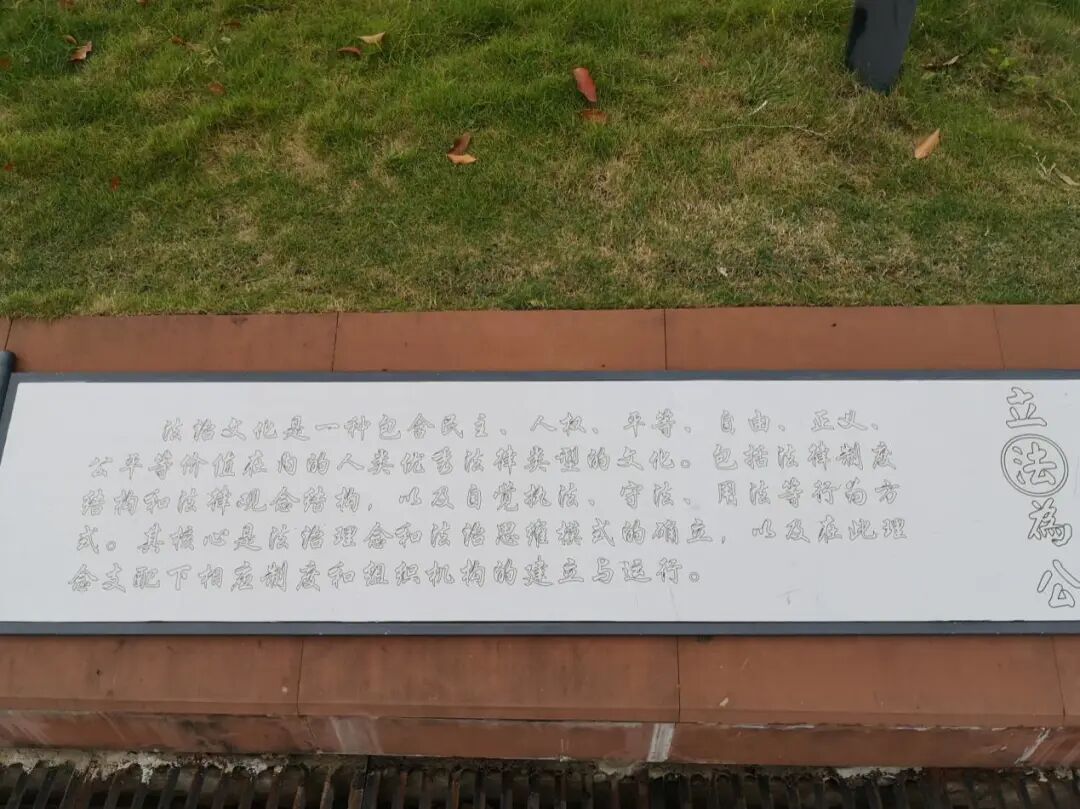 法治文化是一种包含民主、人权、平等、自由、正义、
公平等价值在内的人类优秀法律类型的文化。包括法律制度
结构和法律观念结构，以及自觉执法、守法、用法等行为方
式。其核心是法治理念和法治思维模式的确立，以及在此理
念支配下相应制度和组织机构的建立与运行。
立法為公